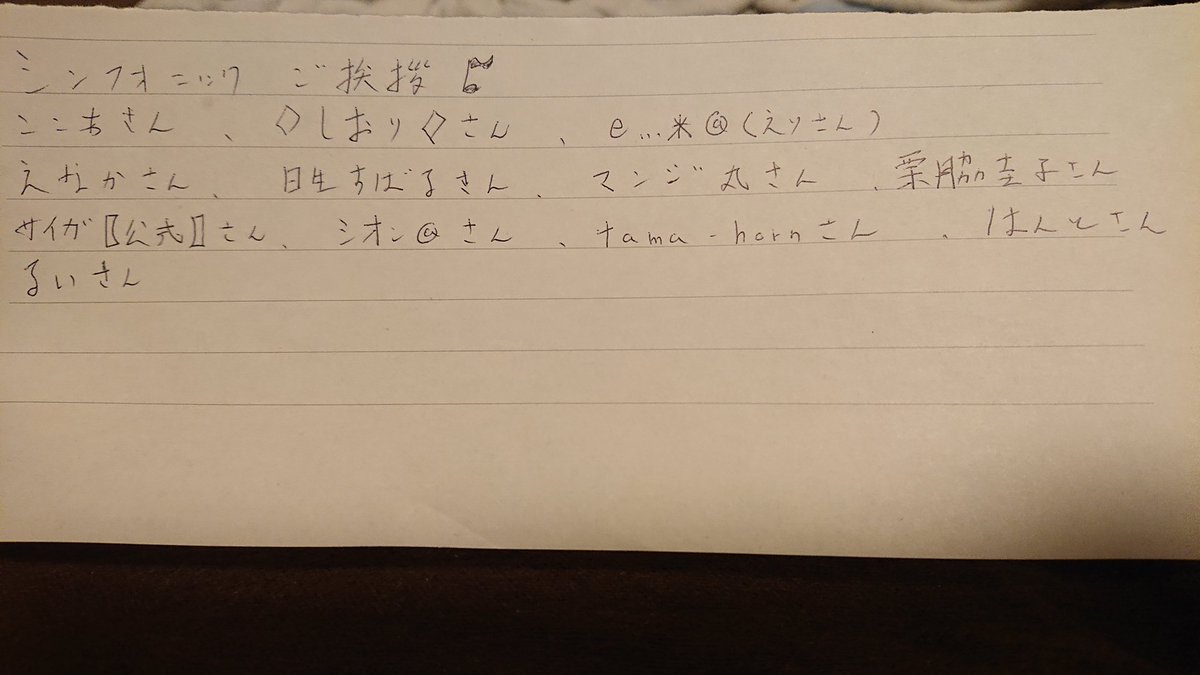 シンフォニック ご挨拶🎵
ここあさん、◇しおり◇さん、e…米@(えりさん)
えなかさん、日生すばるさん、マンジ丸さん、栗脇圭子さん
サイガ〖公式〗さん、シオン@さん、tama-hornさん、はんとさん
るいさん